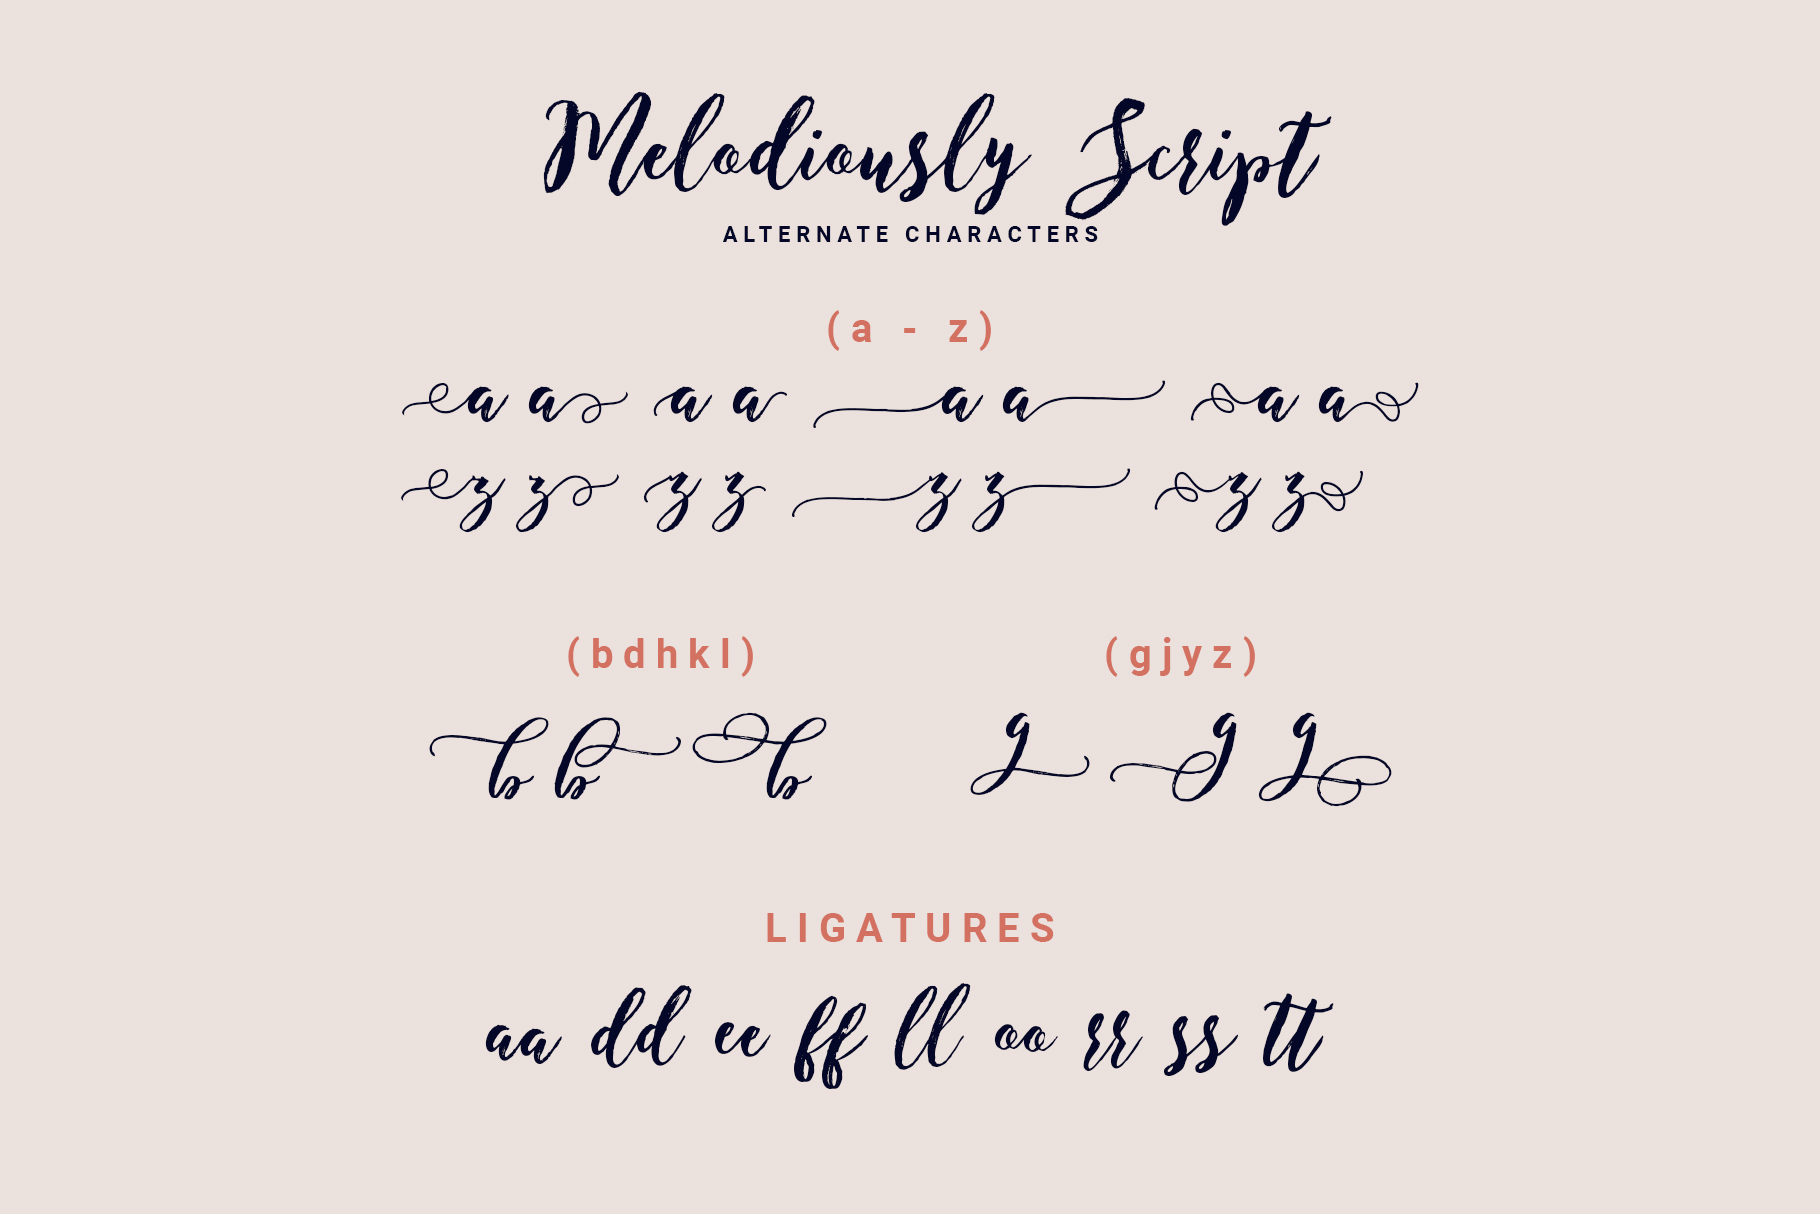 Melodiously Script
ALTERNATE CHARACTERS
(a - z)
a a a a a a a a
z z z z z z z z
(bdhkl) (gjyz)
b b b g g g
LIGATURES
aa dd ee ff ll oo rr ss tt